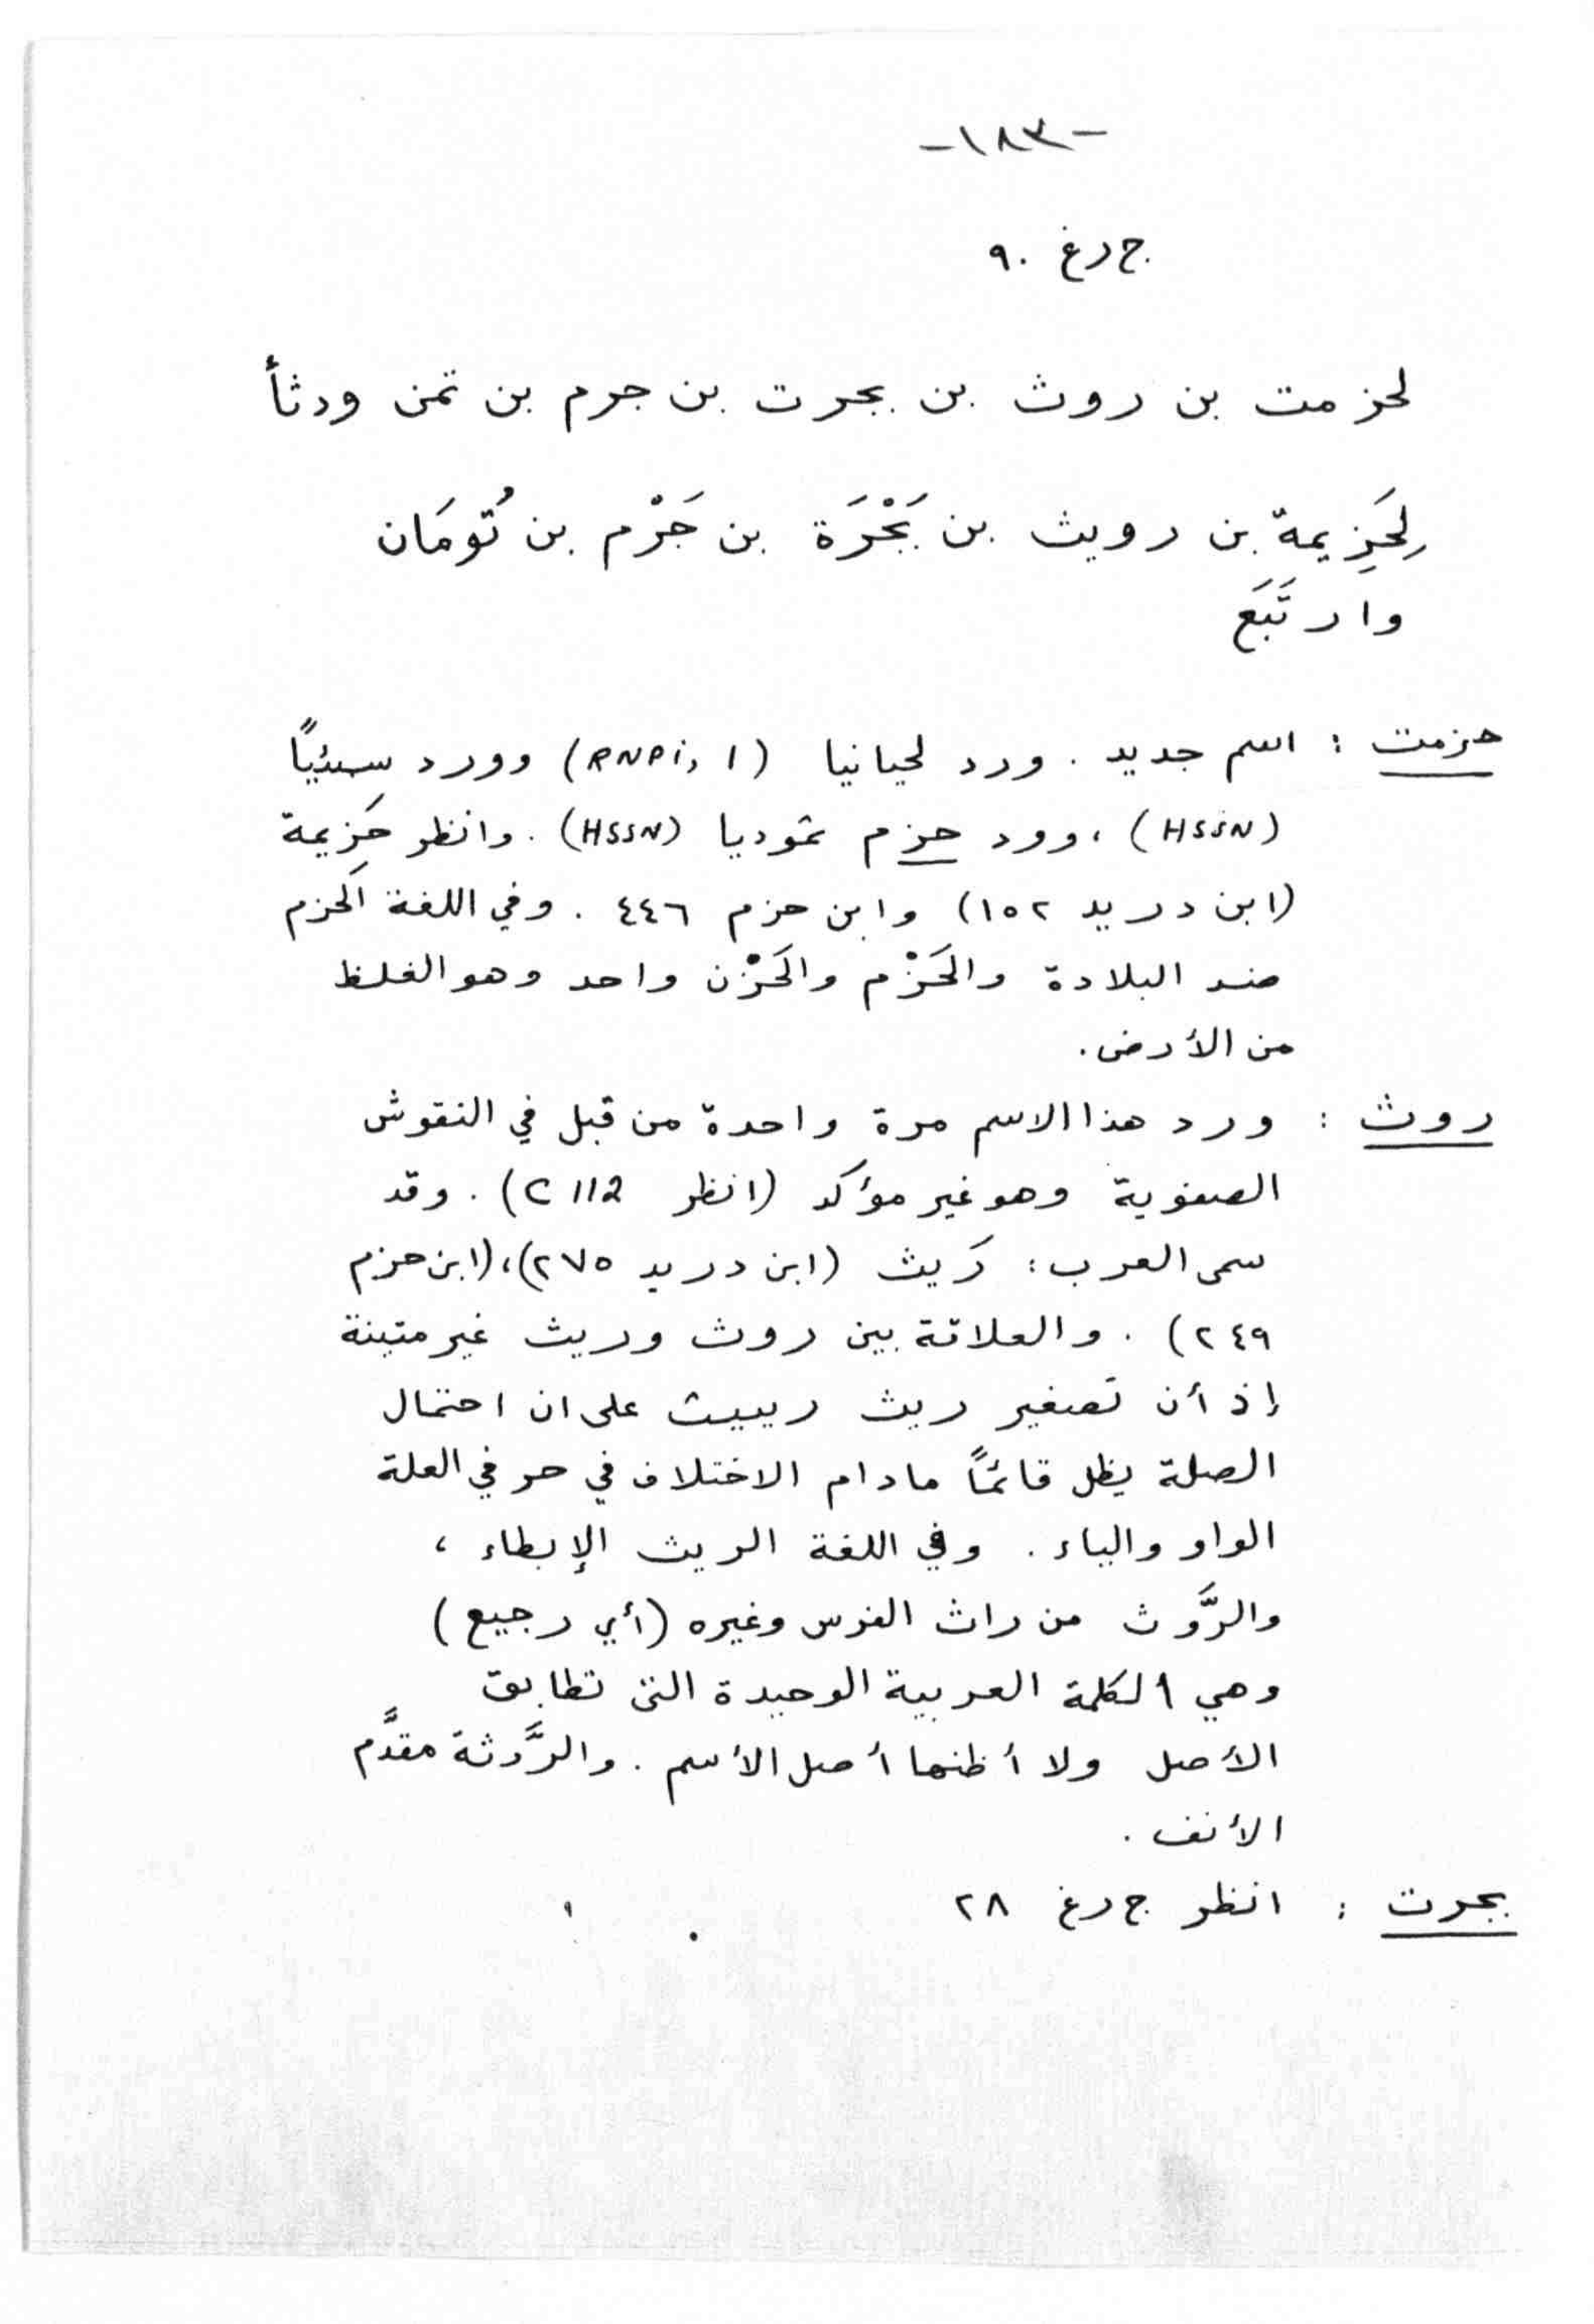 -١٨٣-
ج رغ ٩٠
لحزمت بن روث بن بجرت بن جرم بن تمن ودثأ
لِحَزِيمة بن رويث بن بَجْرَة بن جَرْم بن تُومَان
وارتَبَعَ
حزمت : اسم جديد . ورد لحيانيا (RNPi, 1) وورد سبئياً
(HSSN) ، وورد حزم ثموديا (HSSN) . وانظر حَزِيمة
(ابن دريد ١٥٢) وابن حزم ٤٤٦ . وفي اللغة الحزم
ضد البلادة والحَزْم والحَزْن واحد وهو الغلظ
من الأرض.
روث : ورد هذا الاسم مرة واحدة من قبل في النقوش
الصفوية وهو غير مؤكد (انظر C 112) . وقد
سمى العرب : رَيث (ابن دريد ٢٧٥)، (ابن حزم
٢٤٩) . والعلاقة بين روث وريث غير متينة
إذ أن تصغير ريث رييث على ان احتمال
الصلة يظل قائماً مادام الاختلاف في حرفي العلة
الواو والياء . وفي اللغة الريث الإبطاء ،
والرَّوث من راث الفرس وغيره (أي رجيع)
وهي الكلمة العربية الوحيدة التي تطابق
الأصل ولا أظنها أصل الأسم . والرَّوثة مقدَّم
الأنف .
بجرت : انظر ج رغ ٢٨